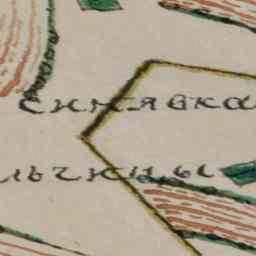 синявка
льчицы